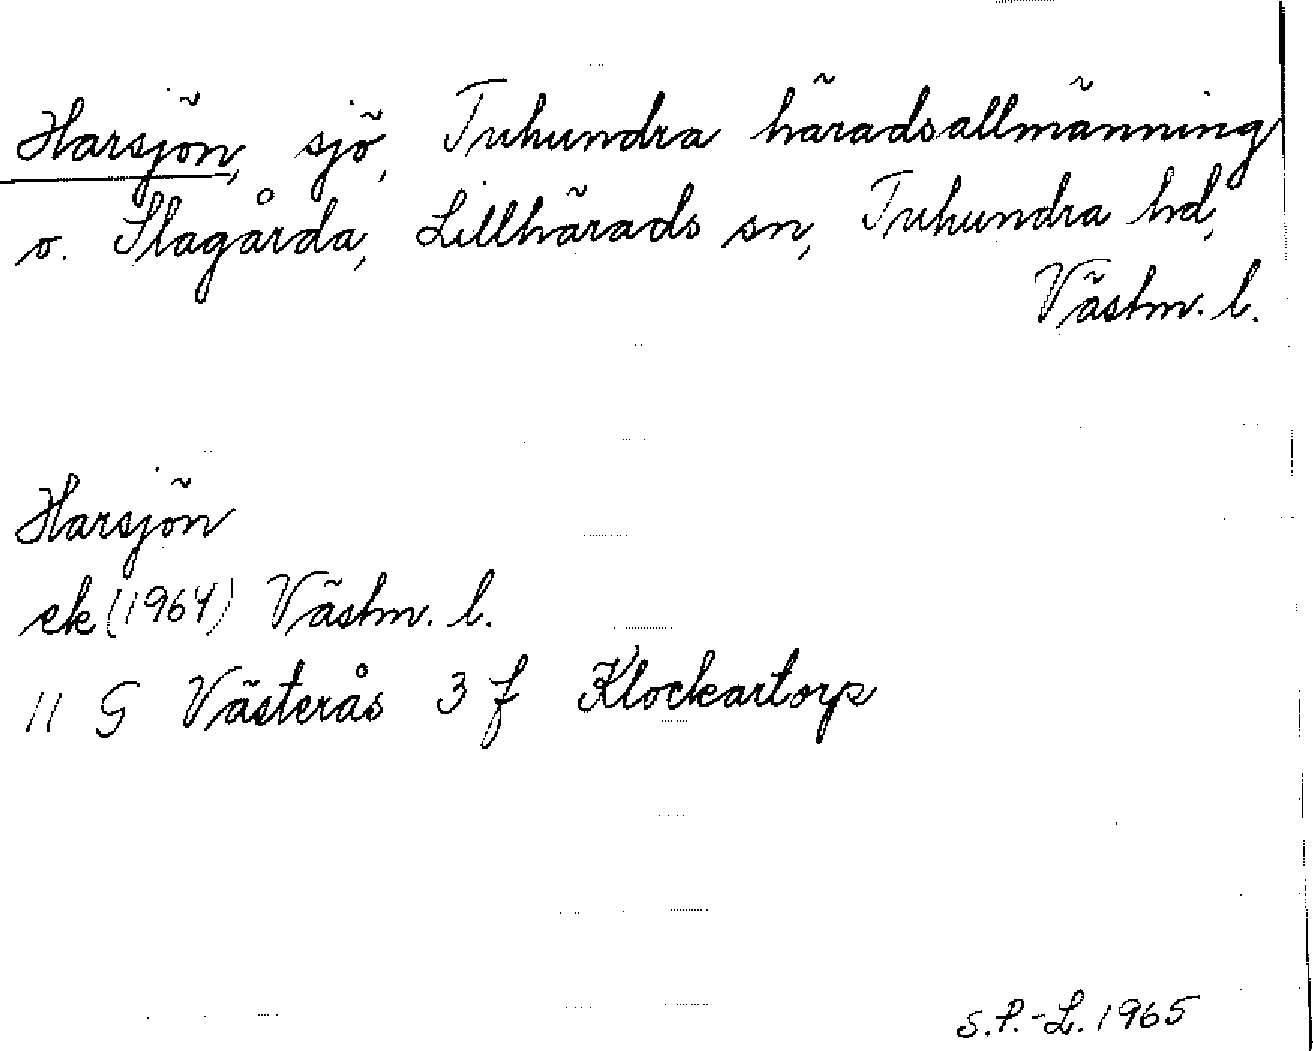 Harsjön, sjö, Tuhundra häradsallmänning
o. Slagårda, Lillhärads sn, Tuhundra hd,
Västm. l.
Harsjön
ek (1964) Västm. l.
11 G Västerås 3 f Klockartorp
S.P.-L. 1965